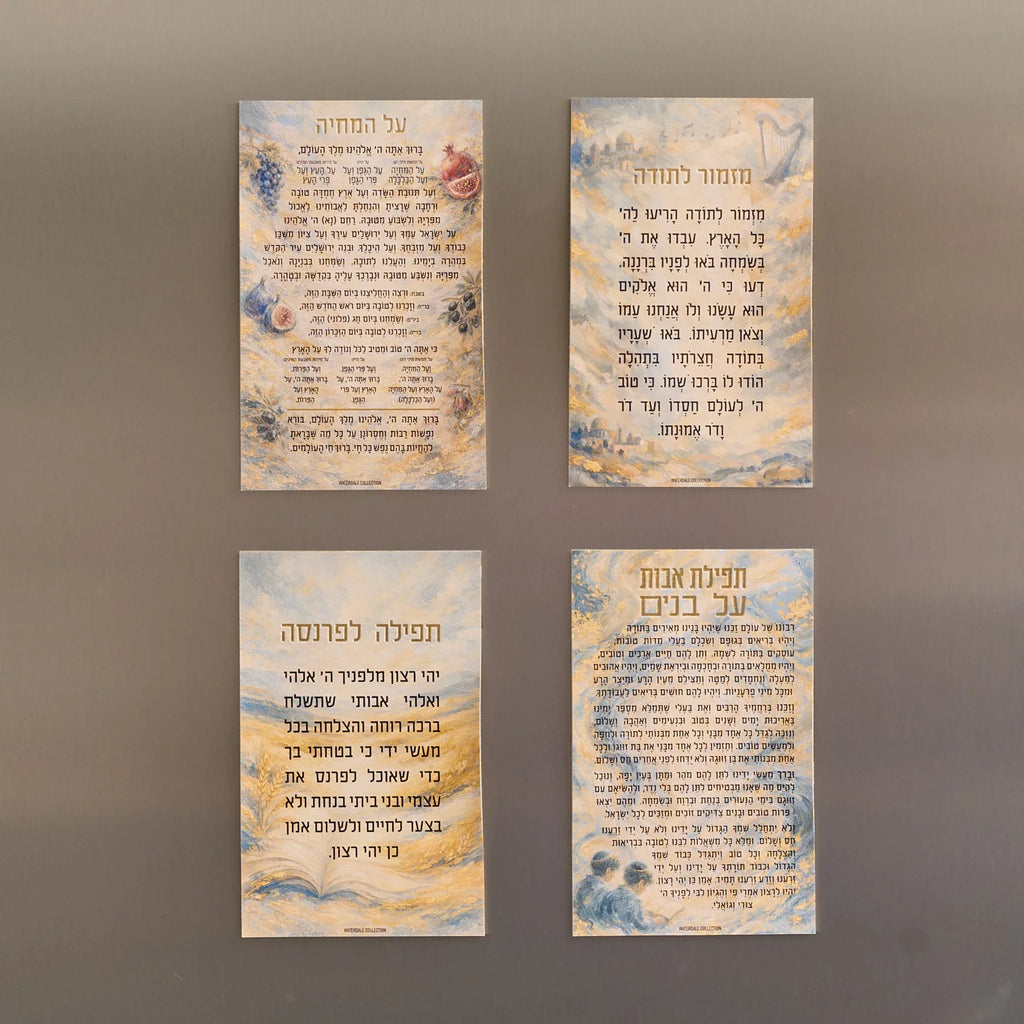 על המחיה
בָּרוּךְ אַתָּה ה' אֱלֹהֵינוּ מֶלֶךְ הָעוֹלָם,
עַל הַמִּחְיָה
וְעַל הַכַּלְכָּלָה
עַל הַגֶּפֶן וְעַל
פְּרִי הַגֶּפֶן
עַל הָעֵץ וְעַל
פְּרִי הָעֵץ
וְעַל תְּנוּבַת הַשָּׂדֶה וְעַל אֶרֶץ חֶמְדָּה טוֹבָה
וּרְחָבָה שֶׁרָצִיתָ וְהִנְחַלְתָּ לַאֲבוֹתֵינוּ לֶאֱכוֹל
מִפִּרְיָהּ וְלִשְׂבּוֹעַ מִטּוּבָהּ. רַחֵם (נָא) ה' אֱלֹהֵינוּ
עַל יִשְׂרָאֵל עַמֶּךָ וְעַל יְרוּשָׁלַיִם עִירֶךָ וְעַל צִיּוֹן מִשְׁכַּן
כְּבוֹדֶךָ וְעַל מִזְבְּחֶךָ וְעַל הֵיכָלֶךָ. וּבְנֵה יְרוּשָׁלַיִם עִיר הַקֹּדֶשׁ
בִּמְהֵרָה בְיָמֵינוּ. וְהַעֲלֵנוּ לְתוֹכָהּ. וְשַׂמְּחֵנוּ בְּבִנְיָנָהּ וְנֹאכַל
מִפִּרְיָהּ וְנִשְׂבַּע מִטּוּבָהּ וּנְבָרֶכְךָ עָלֶיהָ בִּקְדֻשָּׁה וּבְטָהֳרָה.
בשבת: וּרְצֵה וְהַחֲלִיצֵנוּ בְּיוֹם הַשַּׁבָּת הַזֶּה,
בר״ח: וְזָכְרֵנוּ לְטוֹבָה בְּיוֹם רֹאשׁ הַחֹדֶשׁ הַזֶּה,
ביו״ט: וְשַׂמְּחֵנוּ בְּיוֹם חַג (פלוני) הַזֶּה,
בר״ה: וְזָכְרֵנוּ לְטוֹבָה בְּיוֹם הַזִּכָּרוֹן הַזֶּה,
כִּי אַתָּה ה' טוֹב וּמֵטִיב לַכֹּל וְנוֹדֶה לְּךָ עַל הָאָרֶץ
וְעַל הַמִּחְיָה.
בָּרוּךְ אַתָּה ה',
עַל הָאָרֶץ וְעַל הַמִּחְיָה
(וְעַל הַכַּלְכָּלָה).
וְעַל פְּרִי הַגָּפֶן.
בָּרוּךְ אַתָּה ה', עַל
הָאָרֶץ וְעַל פְּרי
הַגָּפֶן.
וְעַל הַפֵּרוֹת.
בָּרוּךְ אַתָּה ה', עַל
הָאָרֶץ וְעַל
הַפֵּרוֹת.
בָּרוּךְ אַתָּה ה', אֱלֹהֵינוּ מֶלֶךְ הָעוֹלָם, בּוֹרֵא
נְפָשׁוֹת רַבּוֹת וְחֶסְרוֹנָן עַל כָּל מַה שֶּׁבָּרָאתָ
לְהַחֲיוֹת בָּהֶם נֶפֶשׁ כָּל חָי. בָּרוּךְ חֵי הָעוֹלָמִים.
WATERDALE COLLECTION
מזמור לתודה
מִזְמוֹר לְתוֹדָה הָרִיעוּ לַה'
כָּל הָאָרֶץ. עִבְדוּ אֶת ה'
בְּשִׂמְחָה בֹּאוּ לְפָנָיו בִּרְנָנָה.
דְּעוּ כִּי ה' הוּא אֱלֹקִים
הוּא עָשָׂנוּ וְלוֹ אֲנַחְנוּ עַמּוֹ
וְצֹאן מַרְעִיתוֹ. בֹּאוּ שְׁעָרָיו
בְּתוֹדָה חֲצֵרֹתָיו בִּתְהִלָּה
הוֹדוּ לוֹ בָּרְכוּ שְׁמוֹ. כִּי טוֹב
ה' לְעוֹלָם חַסְדּוֹ וְעַד דֹּר
וָדֹר אֱמוּנָתוֹ.
WATERDALE COLLECTION
תפילה לפרנסה
יהי רצון מלפניך ה' אלהי
ואלהי אבותי שתשלח
ברכה רוחה והצלחה בכל
מעשי ידי כי בטחתי בך
כדי שאוכל לפרנס את
עצמי ובני ביתי בנחת ולא
בצער לחיים ולשלום אמן
כן יהי רצון.
WATERDALE COLLECTION
תפילת אבות
על בנים
רִבּוֹנוֹ שֶׁל עוֹלָם זַכֵּנוּ שֶׁיִּהְיוּ בָּנֵינוּ מְאִירִים בַּתּוֹרָה
וְיִהְיוּ בְּרִיאִים בְּגוּפָם וְשִׂכְלָם בַּעֲלֵי מִדּוֹת טוֹבוֹת,
עוֹסְקִים בַּתּוֹרָה לִשְׁמָהּ. וְתֵן לָהֶם חַיִּים אֲרֻכִּים וְטוֹבִים,
וְיִהְיוּ מְמֻלָּאִים בַּתּוֹרָה וּבְחָכְמָה וּבְיִרְאַת שָׁמַיִם, וְיִהְיוּ אֲהוּבִים
לְמַעְלָה וְנֶחְמָדִים לְמַטָּה וְתַצִּילֵם מֵעַיִן הָרָע וּמִיֵּצֶר הָרָע
וּמִכָּל מִינֵי פֻּרְעָנִיּוֹת. וְיִהְיוּ לָהֶם חוּשִׁים בְּרִיאִים לַעֲבוֹדָתֶךָ
וְזַכֵּנוּ בְּרַחֲמֶיךָ הָרַבִּים וְאֶת בַּעֲלִי שֶׁתְּמַלֵּא מִסְפַּר יָמֵינוּ
בַּאֲרִיכוּת יָמִים וְשָׁנִים בְּטוֹב וּבִנְעִימִים וְאַהֲבָה וְשָׁלוֹם,
וְנִזְכֶּה לְגַדֵּל כָּל אֶחָד מִבָּנַי וְכָל אַחַת מִבְּנוֹתַי לְתוֹרָה וּלְחֻפָּה
וּלְמַעֲשִׂים טוֹבִים. וְתַזְמִין לְכָל אֶחָד מִבָּנַי אֶת בַּת זוּגוֹ וּלְכָל
אַחַת מִבְּנוֹתַי אֶת בֶּן זוּגָהּ וְלֹא יִדָּחוּ לִפְנֵי אֲחֵרִים חַס וְשָׁלוֹם.
וּבָרֵךְ מַעֲשֵׂי יָדֵינוּ לִתֵּן לָהֶם מֹהַר וּמַתָּן בְּעַיִן יָפָה, וְנוּכַל
לְקַיֵּם מַה שֶּׁאָנוּ מַבְטִיחִים לִתֵּן לָהֶם בְּלִי נֶדֶר, וּלְהַשִּׂיאָם עִם
זִוּוּגָם בִּימֵי הַנְּעוּרִים בְּנַחַת וּבְרֶוַח וּבְשִׂמְחָה. וּמֵהֶם יֵצְאוּ
פֵּרוֹת טוֹבִים וּבָנִים צַדִּיקִים זוֹכִים וּמְזַכִּים לְכָל יִשְׂרָאֵל.
וְלֹא יִתְחַלֵּל שִׁמְךָ הַגָּדוֹל עַל יָדֵינוּ וְלֹא עַל יְדֵי זַרְעֵנוּ
חַס וְשָׁלוֹם. וּמַלֵּא כָּל מִשְׁאֲלוֹת לִבֵּנוּ לְטוֹבָה בִּבְרִיאוּת
וְהַצְלָחָה וְכָל טוּב וְיִתְגַּדֵּל כְּבוֹד שִׁמְךָ
הַגָּדוֹל וּכְבוֹד תּוֹרָתֶךָ עַל יָדֵינוּ וְעַל יְדֵי
זַרְעֵנוּ וְזֶרַע זַרְעֵנוּ תָּמִיד. אָמֵן כֵּן יְהִי רָצוֹן.
יִהְיוּ לְרָצוֹן אִמְרֵי פִי וְהֶגְיוֹן לִבִּי לְפָנֶיךָ ה'
צוּרִי וְגוֹאֲלִי.
WATERDALE COLLECTION